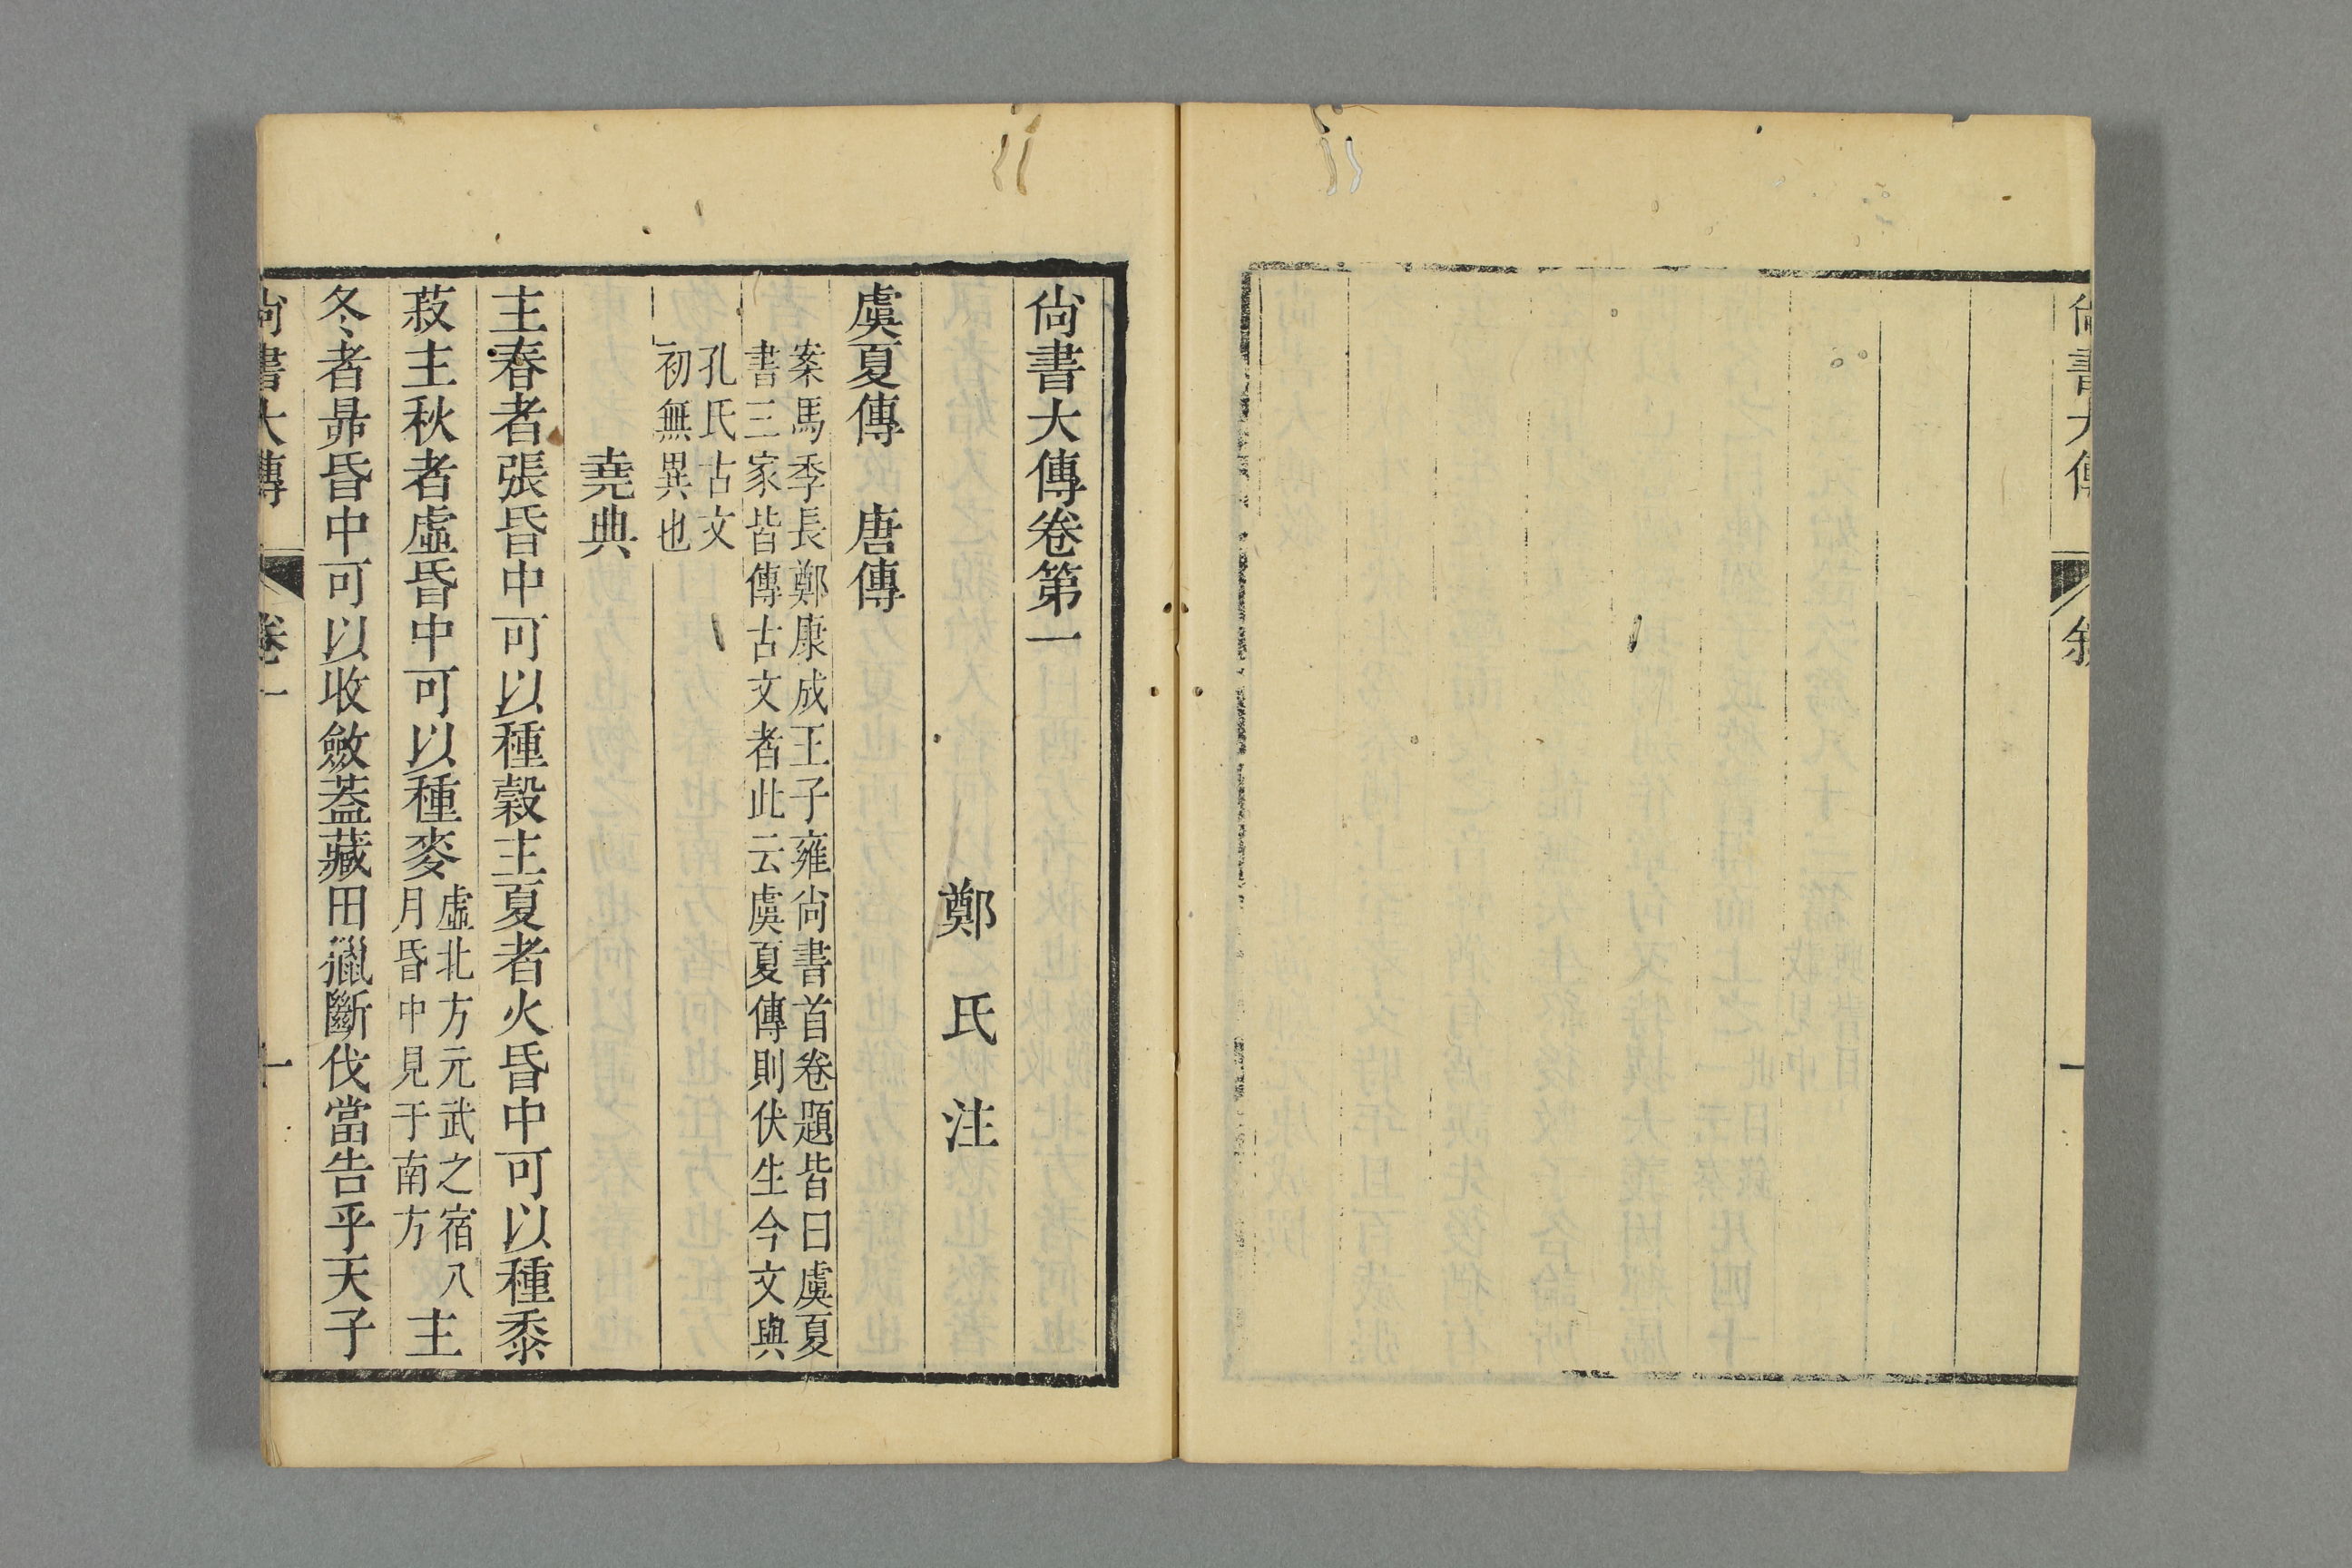 尙書大傳
敘
一
尙書大傳卷第一
鄭氏注
虞夏傳　唐傳
案馬季長鄭康成王子雍尙書首卷題皆曰虞夏
書三家皆傳古文者此云虞夏傳則伏生今文與
孔氏古文
初無異也
堯典
主春者張昏中可以種穀主夏者火昏中可以種黍
菽主秋者虛昏中可以種麥
虛北方元武之宿八
月昏中見于南方
主
冬者昴昏中可以收斂葢藏田獵斷伐當告乎天子
尙書大傳
卷一
一